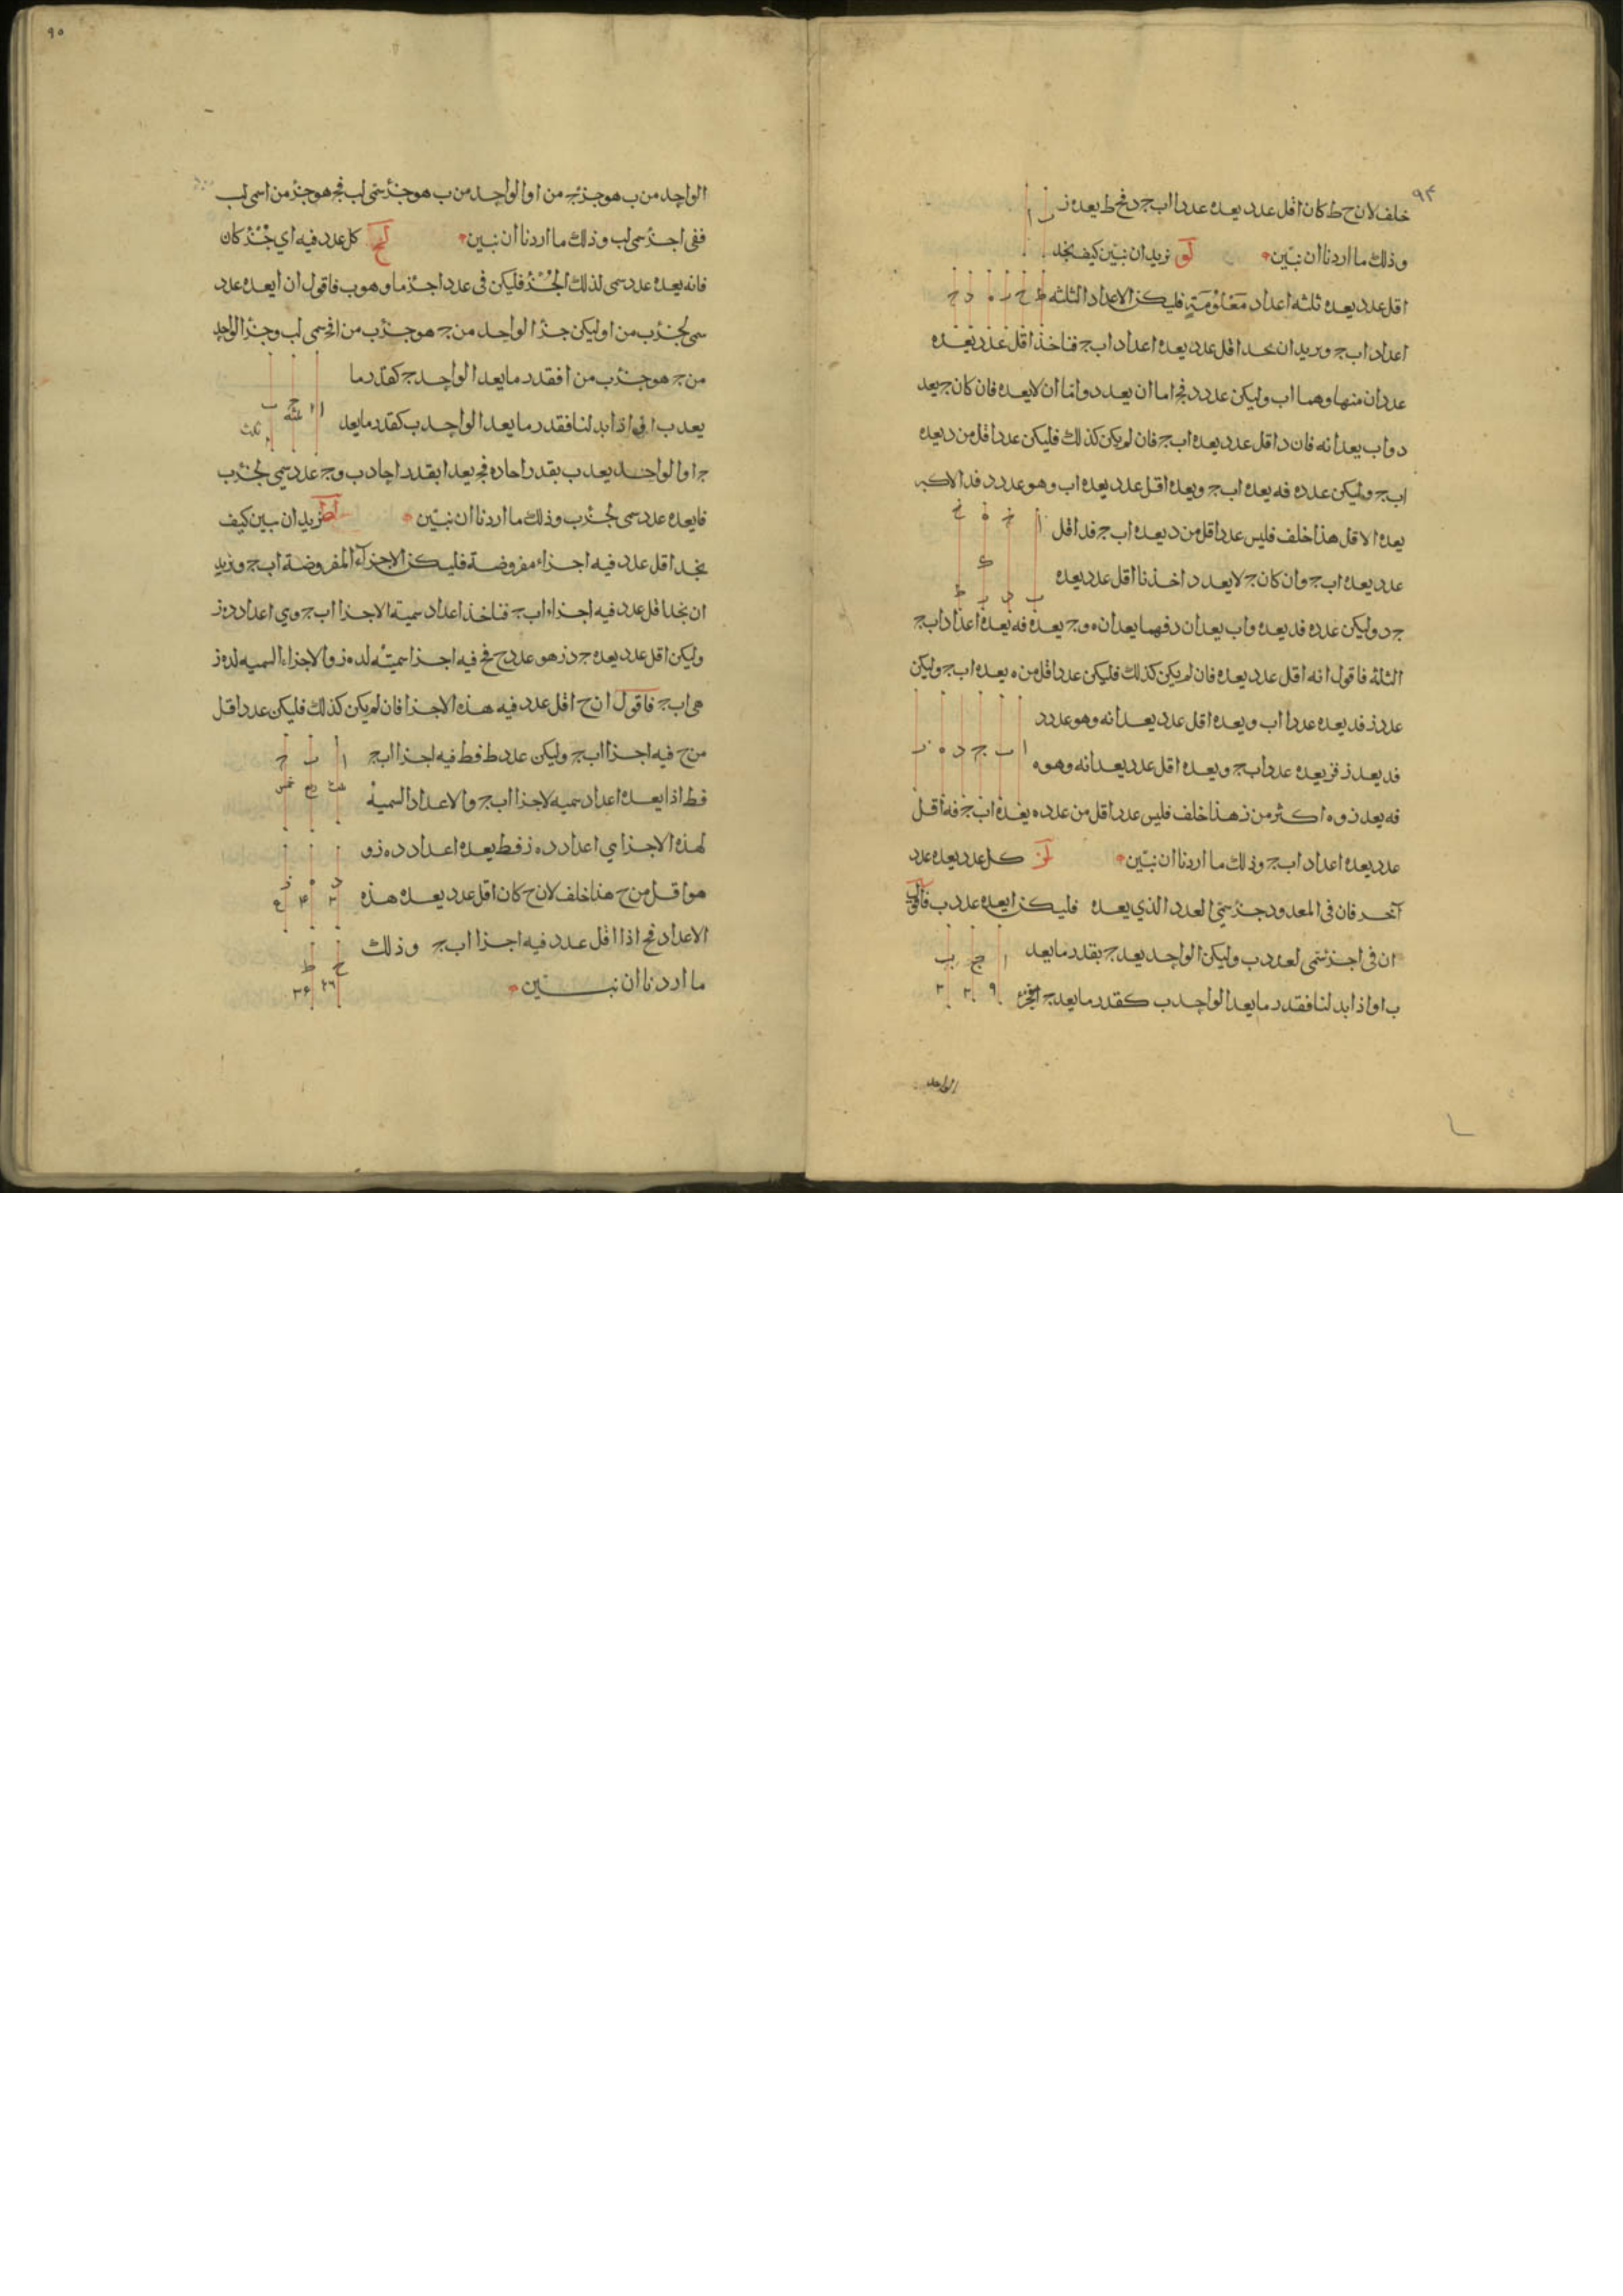 ٩٤
خلف لان ح ط كان اقل عدد يعده عددا ا ب ج د فح ط يعده ز
وذلك ما اردنا ان نبيّن لو نريد ان نبيّن كيف نجد
اقل عدد يعده ثلثه اعداد مَعْلوُمَةٍ فليكن الاعداد الثلثه
اعداد ا ب ج ونريد ان نجد اقل عدد يعده اعداد ا ب ج فناخذ اقل عدد يعده
عددان منها وهما ا ب وليكن عدد د فج اما ان يعد د واما ان لا يعده فان كان ج يعد
د و ا ب يعدانه فان د اقل عدد يعده ا ب ج فان لم يكن كذلك فليكن عدد اقل من د يعده
ا ب ج وليكن عدد ه فه يعده ا ب ج ويعده اقل عدد يعده ا ب وهو عدد د فد الاكبر
يعد ه الاقل هذا خلف فليس عدد اقل من د يعده ا ب ج فد اقل
عدد يعده ا ب ج وان كان ج لا يعد د اخذنا اقل عدد يعده
ج د وليكن عدد ه فد يعده و ا ب يعدان د فهما يعدان ه و ج يعده فه يعده اعداد ا ب ج
الثلثة فاقول انه اقل عدد يعده فان لم يكن كذلك فليكن عدد اقل من ه يعده ا ب ج وليكن
عدد ز فد يعده عددا ا ب ويعده اقل عدد يعدانه وهو عدد د
فد يعد ز فز يعده عدد ا ب ج ويعده اقل عدد يعدانه وهو ه
فه يعد ز و ه اكثر من ز هذا خلف فليس عدد اقل من عدد ه يعده ا ب ج فه اقل
عدد يعده اعداد ا ب ج وذلك ما اردنا ان نبيّن لز كل عدد يعده عدد
آخر فان فى المعدود جزءً سمّى العدد الذي يعده فليكن ا يعده عدد ب فاقول
ان فى ا جزء سمّى لعدد ب وليكن الواحد يعد ج بقدر ما يعد
ب ا واذا بدلنا فقدر ما يعد الواحد ب كقدر ما يعد ج ا
الواحد
٩٥
الواحد من ب هو جزء ج من ا و الواحد من ب هو جزء سمّى لب فج هو جزء من ا سمى لب
ففى ا جزء سمى لب وذلك ما اردنا ان نبين لح كل عدد فيه اي جُزْء كان
فانه يعده عدد سمى لذلك الجُزْء فليكن فى عدد ا جزء ما وهو ب فاقول ان ا يعده عدد
سمى لجزء ب من ا وليكن جزء الواحد من ج هو جزء ب من ا فج سمى لب وجزء الواحد
من ج هو جزء ب من ا فقدر ما يعد الواحد ج كقدر ما
يعد ب ا فاذا بدلنا فقدر ما يعد الواحد ب كقدر ما يعد
ج ا و الواحد يعد ب بقدر احاده فج يعد ا بقدر احاد ب و ج عدد سمى لجزء ب
فا يعده عدد سمى لجزء ب وذلك ما اردنا ان نبيّن لط نريد ان نبين كيف
نجد اقل عدد فيه اجزاء مفروضة فليكن الاجزآء المفروضة ا ب ج ونريد
ان نجد اقل عدد فيه اجزاء ا ب ج فناخذ اعداد سمية الاجزا ا ب ج وهي اعداد د ه ز
وليكن اقل عدد يعده ج د ز هو عدد ح فح فيه اجزا سميتُه لد ه ز والاجزاء السميه لد ه ز
هى ا ب ج فاقول ان ح اقل عدد فيه هذه الاجزا فان لم يكن كذلك فليكن عدد اقل
من ح فيه اجزا ا ب ج وليكن عدد ط فط فيه اجزا ا ب ج
فط اذا يعده اعداد سميه لاجزا ا ب ج والاعداد السمية
لهذه الاجزا هي اعداد د ه ز فط يعده اعداد د ه ز و
هو اقل من ح هذا خلف لان ح كان اقل عدد يعده هذه
الاعداد فح اذا اقل عدد فيه اجزا ا ب ج وذلك
ما اردنا ان نبــين